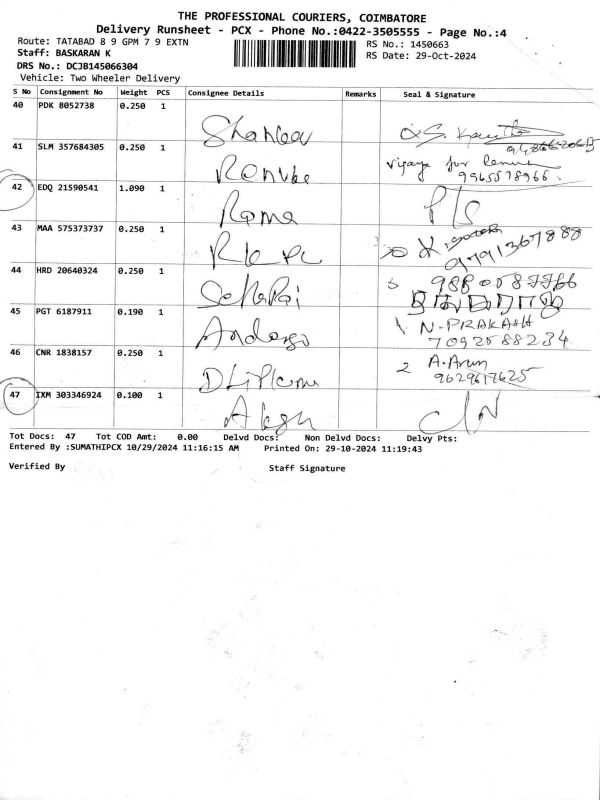 THE PROFESSIONAL COURIERS, COIMBATORE
Delivery Runsheet - PCX - Phone No.:0422-3505555 - Page No.:4
Route: TATABAD 8 9 GPM 7 9 EXTN
RS No.: 1450663
Staff: BASKARAN K
RS Date: 29-Oct-2024
DRS No.: DCJB145066304
Vehicle: Two Wheeler Delivery
S No Consignment No Weight PCS Consignee Details Remarks Seal & Signature
40 PDK 8052738 0.250 1
41 SLM 357684305 0.250 1
vijaya for
9965578966
42 EDQ 21590541 1.090 1 Rama
43 MAA 575373737 0.250 1
9791367888
44 HRD 20640324 0.250 1
45 PGT 6187911 0.190 1
N-PRAKASH
7092588234
46 CNR 1838157 0.250 1
2 A.Arun
9629617625
47 IXM 303346924 0.100 1
Tot Docs: 47 Tot COD Amt: 0.00 Delvd Docs: Non Delvd Docs: Delvy Pts:
Entered By :SUMATHIPCX 10/29/2024 11:16:15 AM Printed On: 29-10-2024 11:19:43
Verified By Staff Signature